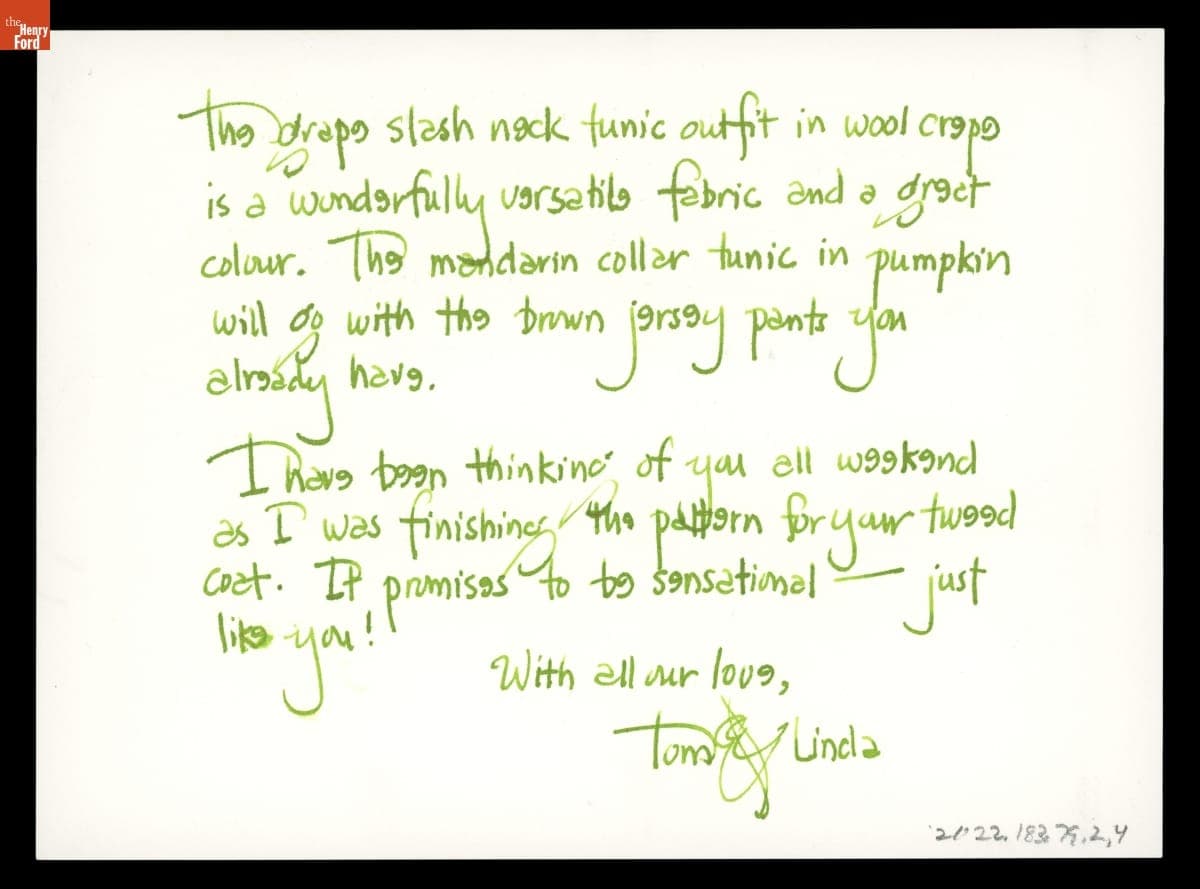 the
Henry
Ford
The grape slash neck tunic outfit in wool crepe
is a wonderfully versatile fabric and a great
colour. The mandarin collar tunic in pumpkin
will go with the brown jersey pants you
already have.
I have been thinking of you all weekend
as I was finishing the pattern for your tweed
coat. It promises to be sensational — just
like you!
With all our love,
Tom & Linda
2022.183.79.2.4